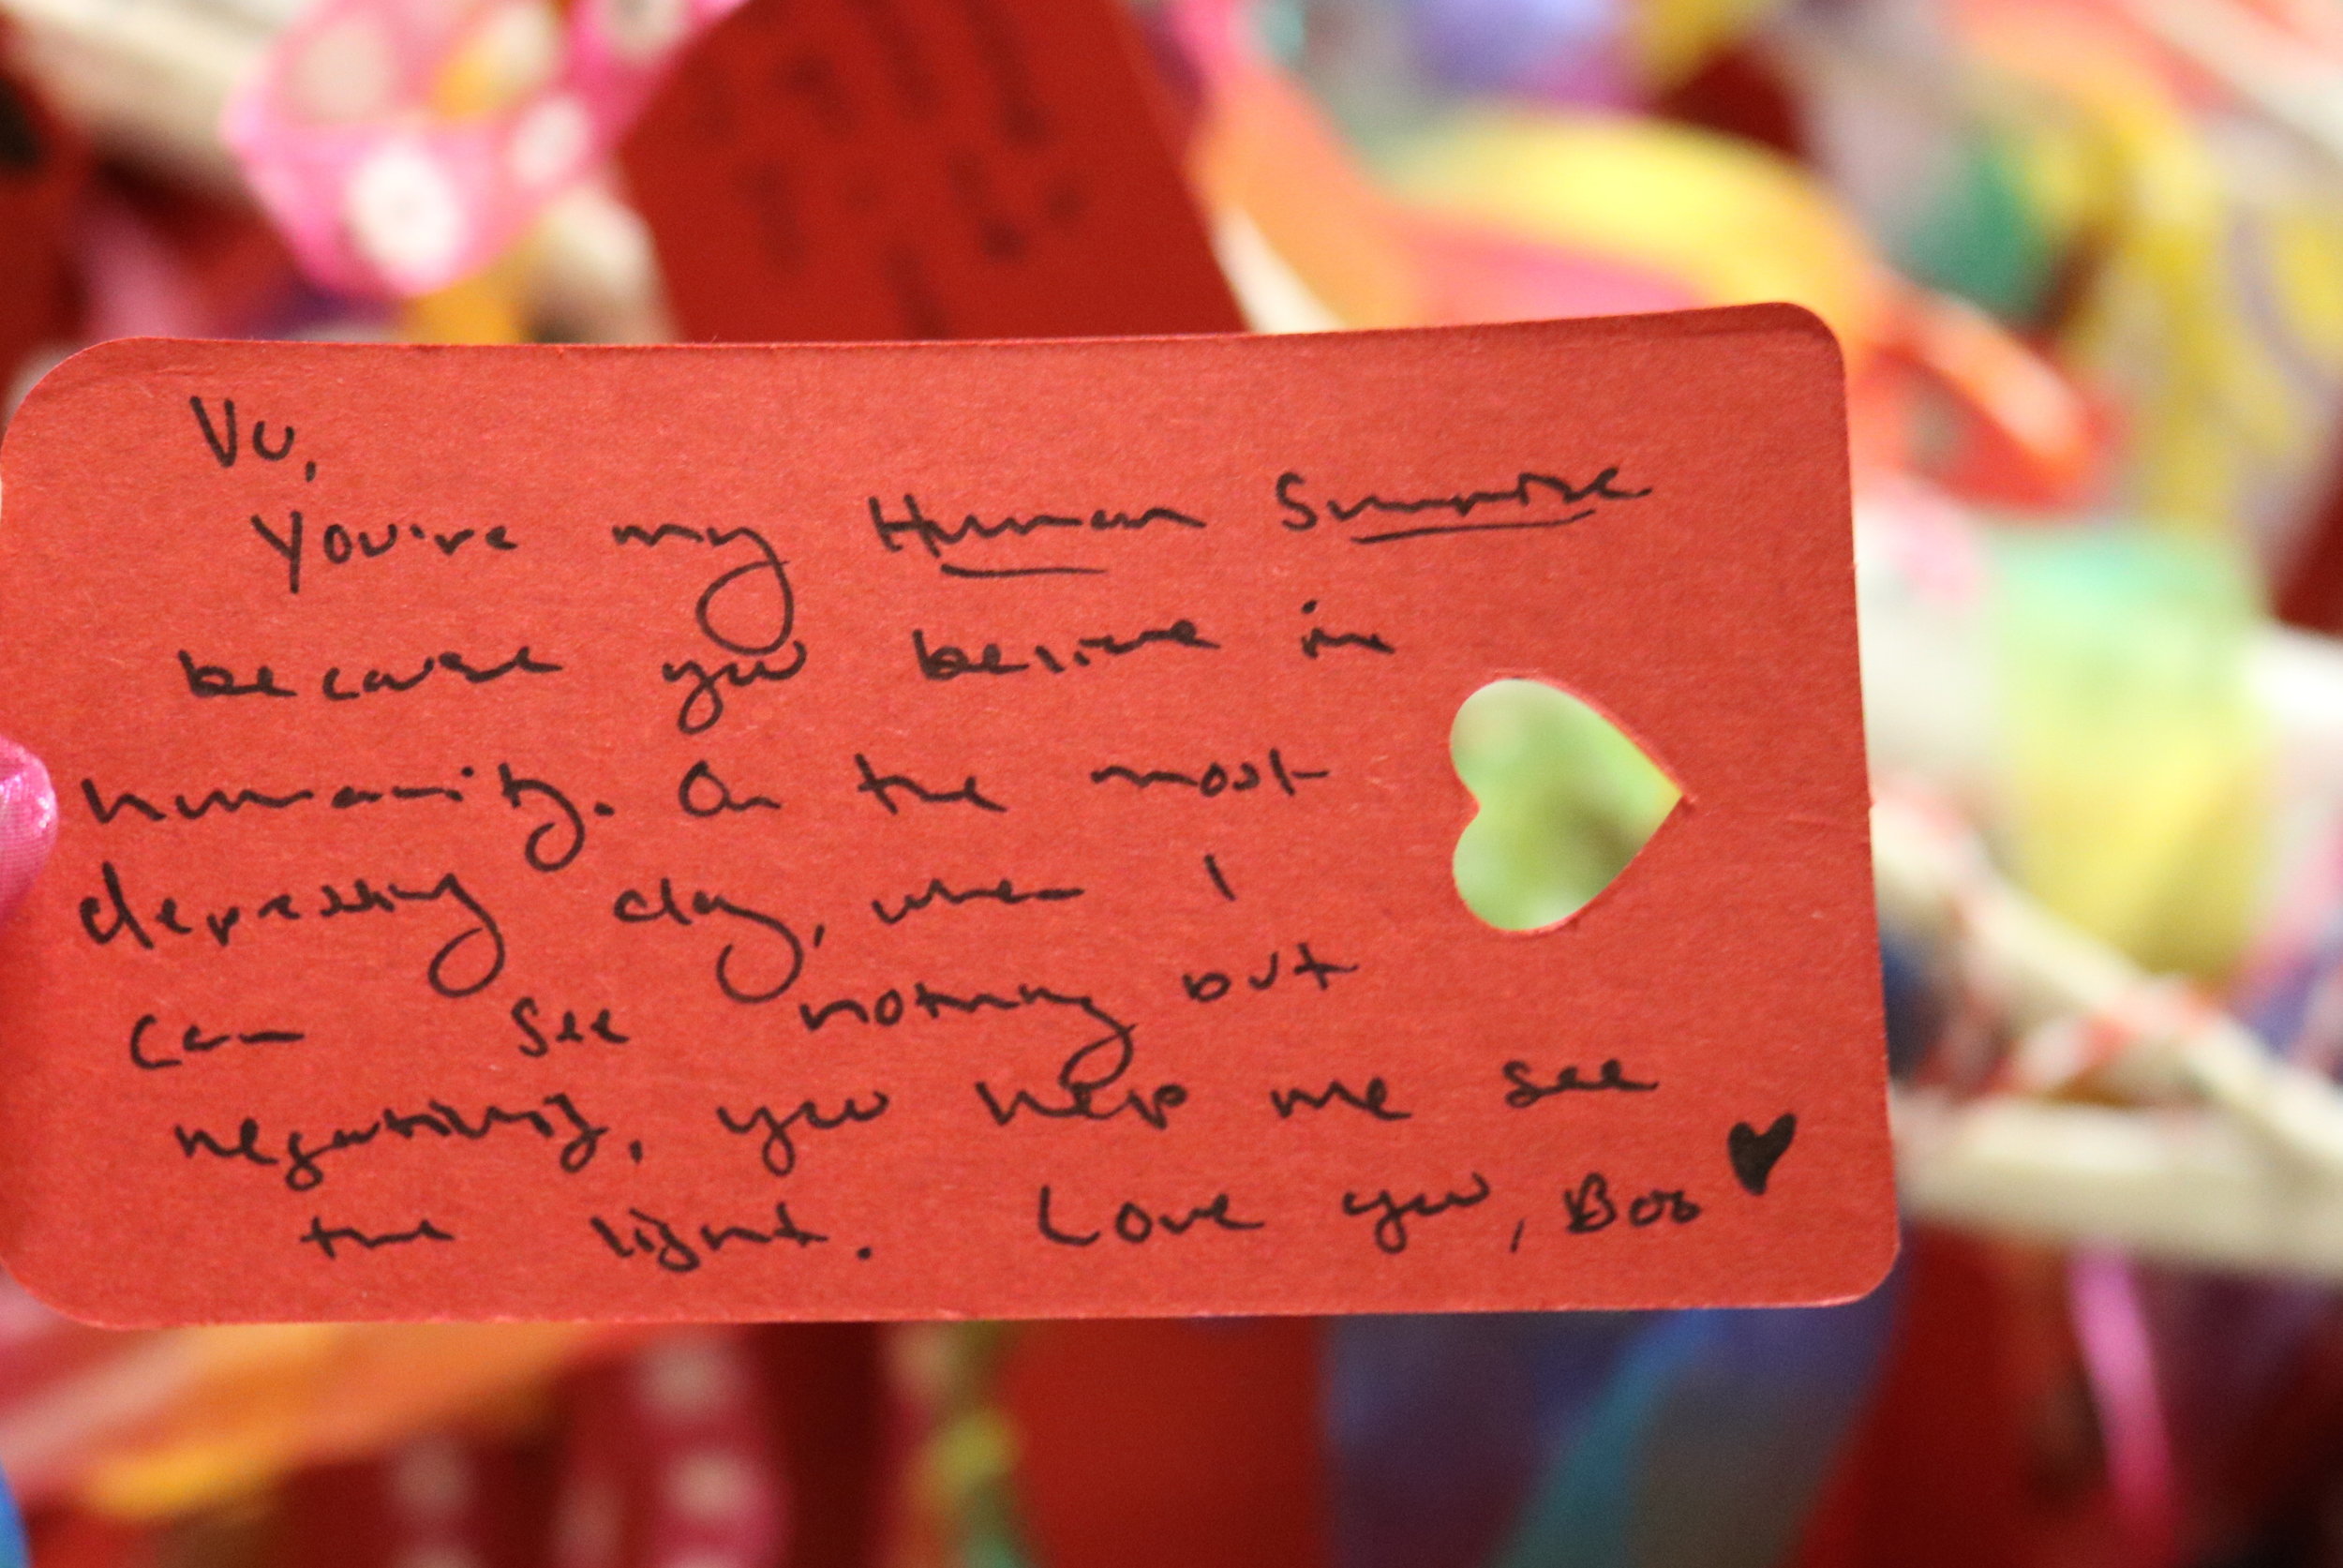 Vu,
You're my Human Sunrise
because you believe in
humanity. On the most
depressing day, when I
can see nothing but
negativity, you help me see
the light. Love you, Bob